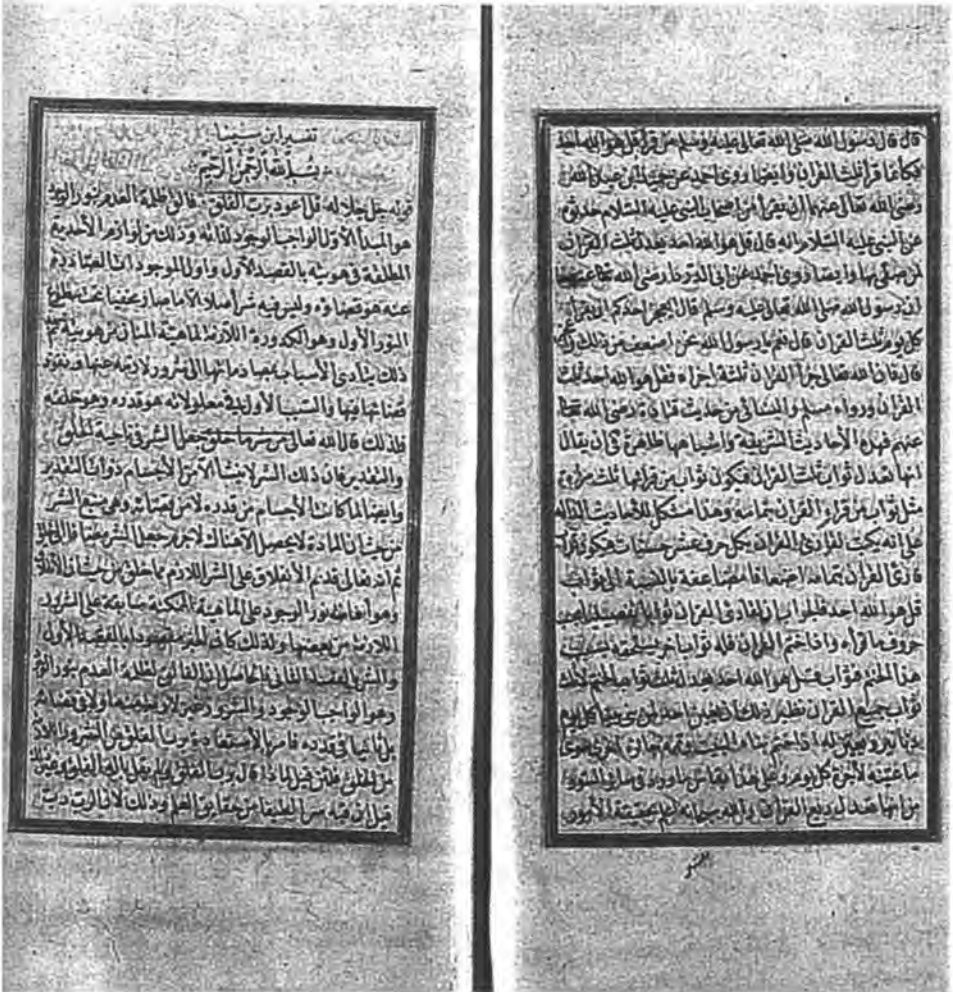 قال قال رسول الله صلى الله تعالى عليه وسلم من قرأ قل هو الله احد
فكأنما قرأ ثلث القران وايضا روى احمد عن حميد ابن عبد الرحمن
رضى الله تعالى عنهم ان نفرا من اصحاب النبى عليه السلام حدثوه
عن النبى عليه السلام انه قال قل هو الله احد يعدل ثلث القران
لمن صلى بها وايضا روى احمد عن ابى الدرداء رضى الله تعالى عنه
ان رسول الله صلى الله تعالى عليه وسلم قال ايعجز احدكم ان يقرأ
كل يوم ثلث القران قال نعم يا رسول الله نحن اضعف من ذلك واعجز
قال فان الله تعالى جزأ القران ثلثة اجزاء فقل هو الله احد ثلث
القران ورواه مسلم والنسائى من حديث قتادة رضى الله تعالى
عنهم فهذه الأحاديث الشريفة واشباهها ظاهرة فى ان يقال
انها تعدل ثواب ثلث القران فيكون ثواب من قرأها ثلث مرات
مثل ثواب من قرأ القران بتمامه وهذا مشكل للأحاديث الدالة
على انه يكتب لقارئ القران بكل حرف عشر حسنات فيكون ثواب
قارئ القران بتمامه اضعافا مضاعفة بالنسبة الى ثواب
قل هو الله احد قلنا ان لقارئ القران ثوابا تفصيليا بحسب
حروف ما قرأه واذا ختم القران فله ثواب اخر يستحقه بسبب
هذا الختم فثواب قل هو الله احد يعدل ثلث ثواب الختم لا ثلث
ثواب جميع القران نظير ذلك ان يعين احد لمن يبنى بيتا كل يوم
دينارين ويعين له اذا ختم بناء البيت وتمه جائزة اخرى سوى
ما عينه لأجرة كل يوم وعلى هذا يقاس ما ورد فى سائر السور
من انها تعدل ربع القران والله سبحانه اعلم بحقيقة الأمور
تفسير ابن سينا
بسم الله الرحمن الرحيم
قوله جل جلاله قل اعوذ برب الفلق فالق ظلمة العدم بنور الوجود
هو المبدأ الأول الواجب الوجود لذاته وذلك من لوازم
المطلقة فى هويته بالقصد الأول واول الموجودات الصادرة
عنه هو قضاؤه وليس فيه شر اصلا الا ما صار مخفيا تحت سطوع
النور الأول وهو الكدورة اللازمة لماهيته المنشأة من هويته ثم
ذلك يتأدى الأسباب بمصادماتها الى شرور لازمة عنها ونفوذ
قضائها فيها والسبب الأول فى معلولاته هو قدره وهو خلقه
فلذلك قال الله تعالى من شر ما خلق جعل الشر فى ناحية الخلق
والتقدير فان ذلك الشر لا ينشأ الا من الأجسام ذوات التقدير
وايضا لما كانت الأجسام من قدره لا من قضائه وهى منبع الشر
من حيث ان المادة لا يحصل الا هناك لا جرم جعل الشر مضافا الى ما خلق
ثم انه تعالى قدم الأنفلاق على الشر اللازم مما خلق من حيث ان الأنفلاق
وهو افاضة نور الوجود على الماهية الممكنة سابقة على الشرور
اللازمة من بعضها ولذلك كان الخير مقصودا بالقصد الأول
والشر بالقصد الثانى فالحاصل ان الفالق لظلمة العدم بنور الوجود
وهو الواجب الوجود والشرور غير لازمة اولا فى قضائه
بل ثانيا فى قدره فامر بالأستعاذة برب الفلق من الشرور اللازمة
من الخلق فلئن قيل لماذا قال رب الفلق ولم يقل اله الفلق وغيره
قيل ان فيه سرا لطيفا من حقايق العلم وذلك لان الرب رب